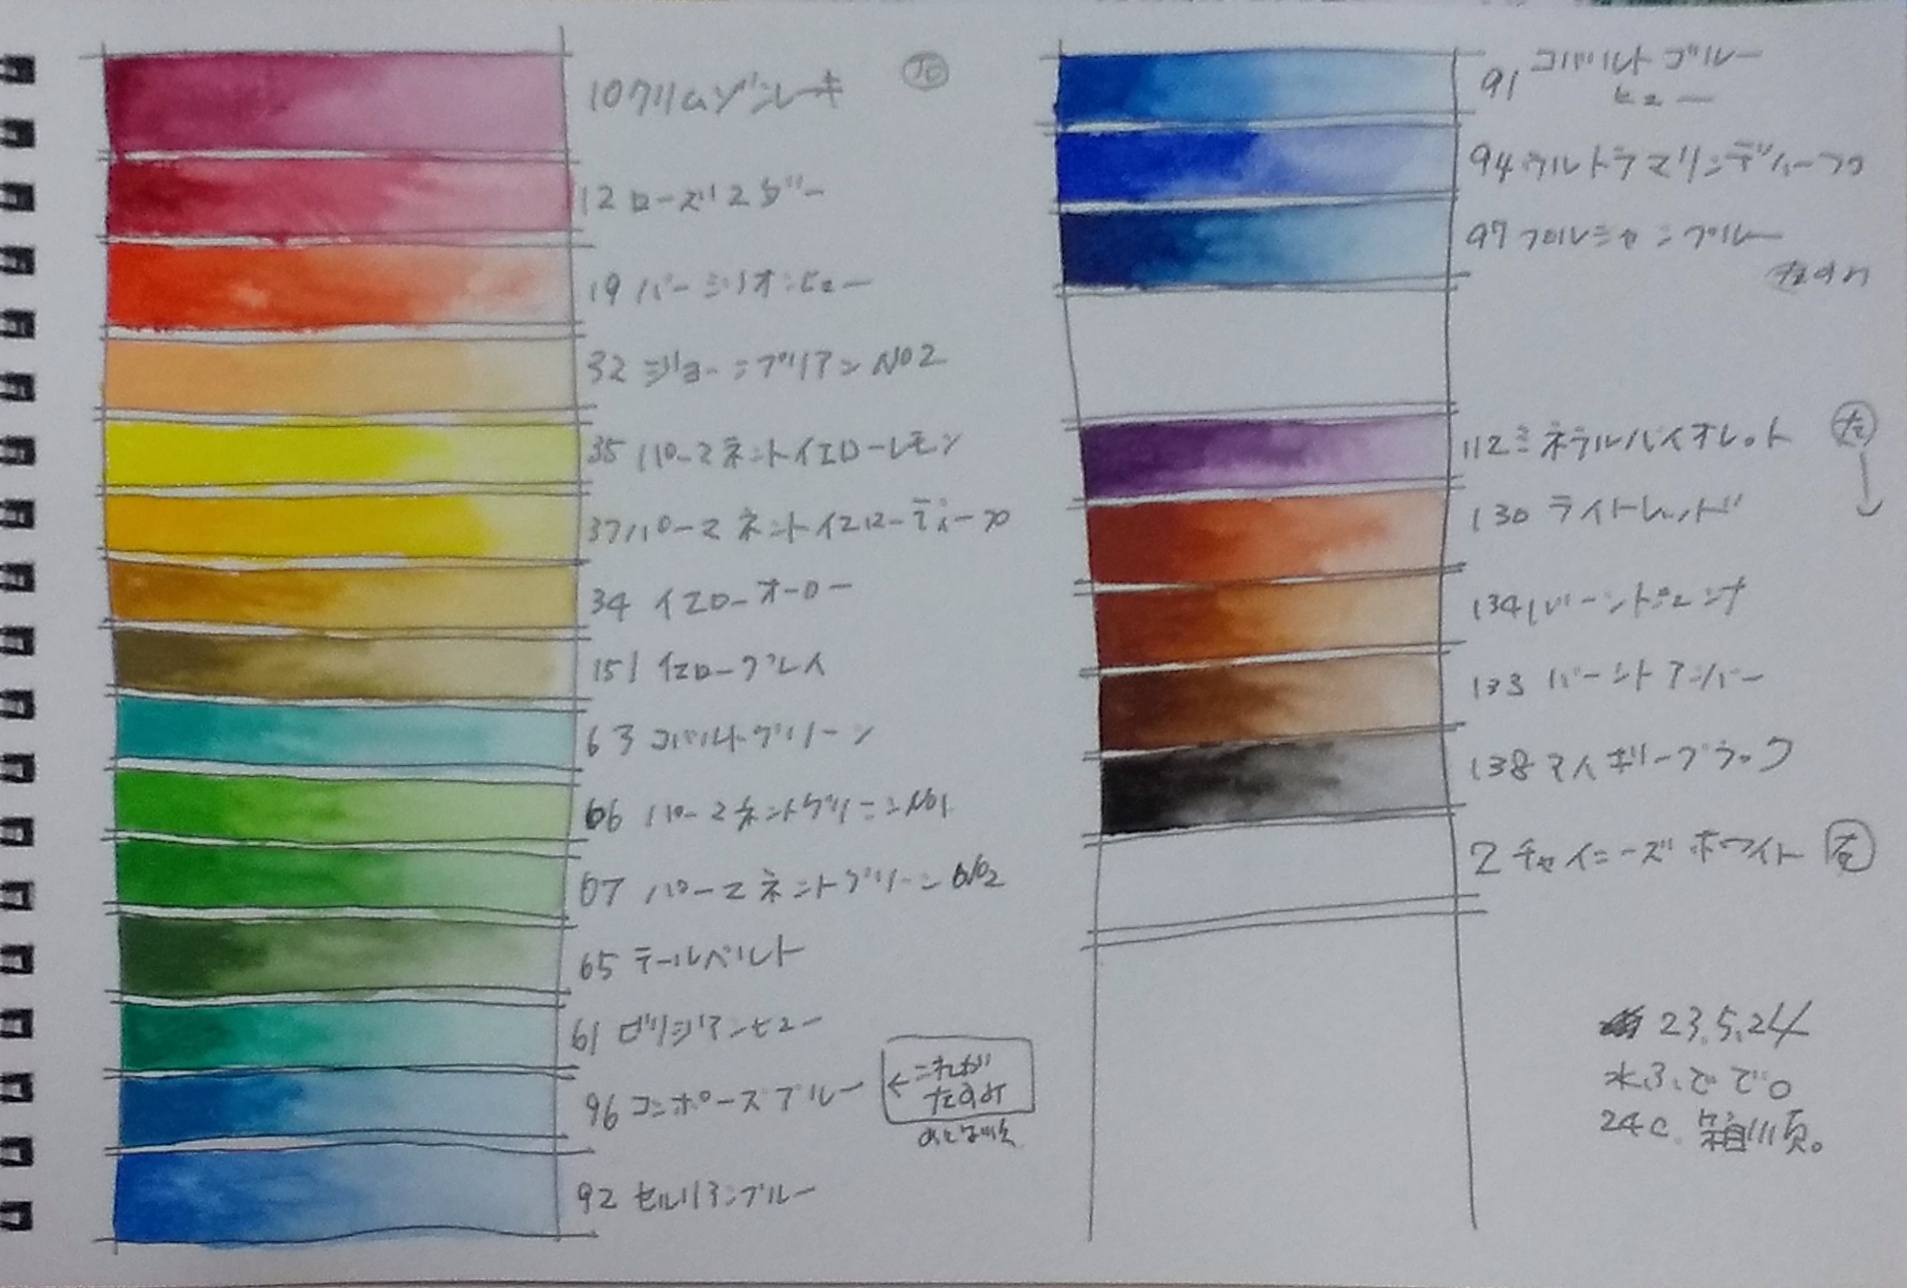 10 クリムゾンレーキ
12 ローズマダー
19 バーミリオンヒュー
32 ジョーンブリアン NO2
35 パーマネントイエローレモン
37 パーマネントイエローディープ
34 イエローオーカー
151 イエローグレイ
63 コバルトグリーン
66 パーマネントグリーン NO1
67 パーマネントグリーン NO2
65 テールベルト
61 ビリジアンヒュー
96 コンポーズブルー
←これが
92 セルリアンブルー
91 コバルトブルー
ヒュー
94 ウルトラマリンディープ
97 プルシャンブルー
112 ミネラルバイオレット 左
130 ライトレッド
↓
134 バーントシェンナ
133 バーントアンバー
138 アイボリーブラック
2 チャイニーズホワイト 右
23.5.24
24c. 箱川頁。